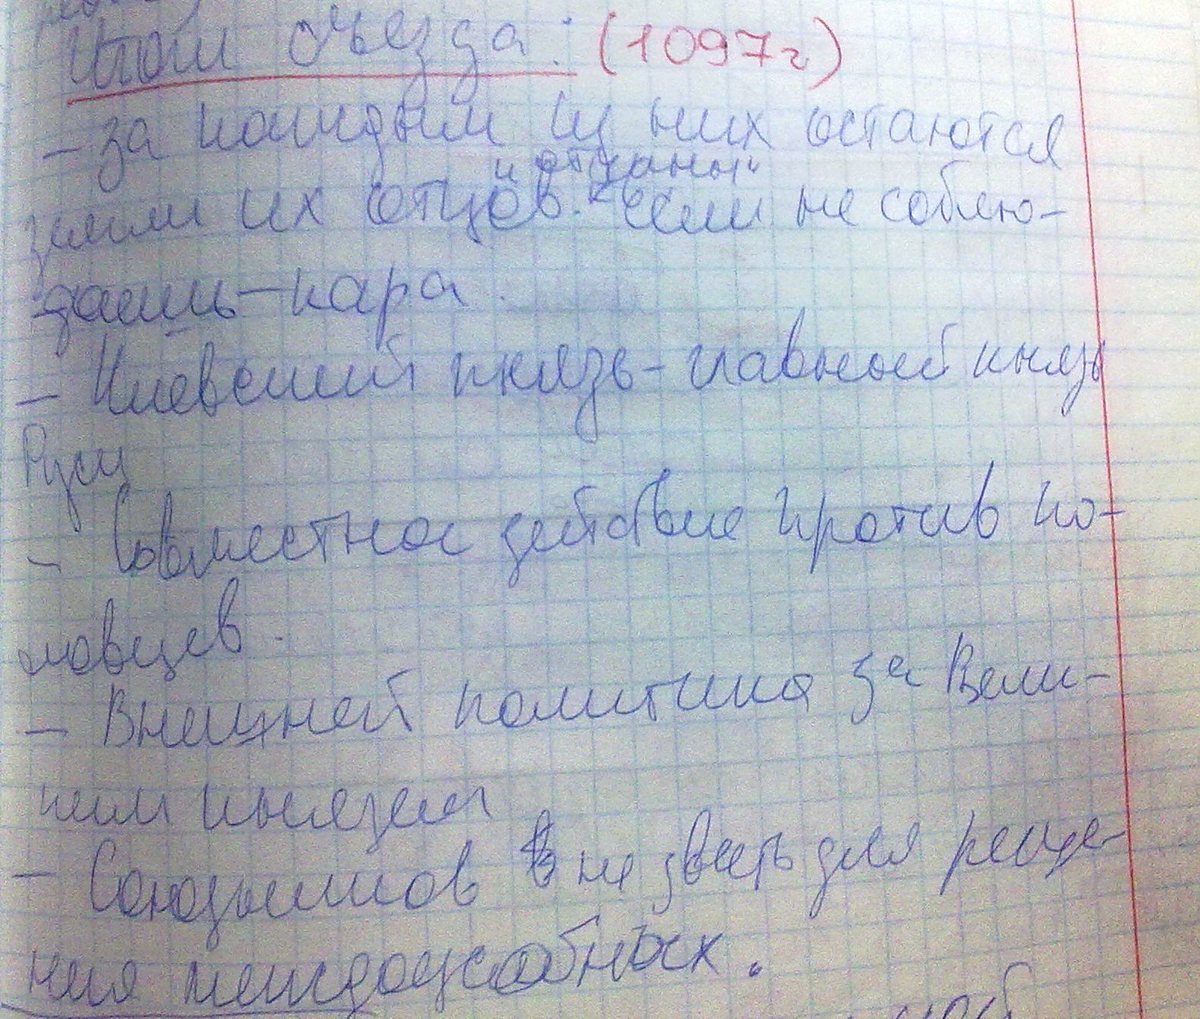 Итоги съезда: (1097г)
- за каждым из них остаются
и отчины"
земли их отцов. если не соблю-
даешь - кара.
- Киевский князь - главный князь
Руси
- Совместное действие против по-
ловцев.
- Внешней политика за Вели-
ким князем
- Союзников не звать для реше-
ния междоусобных.